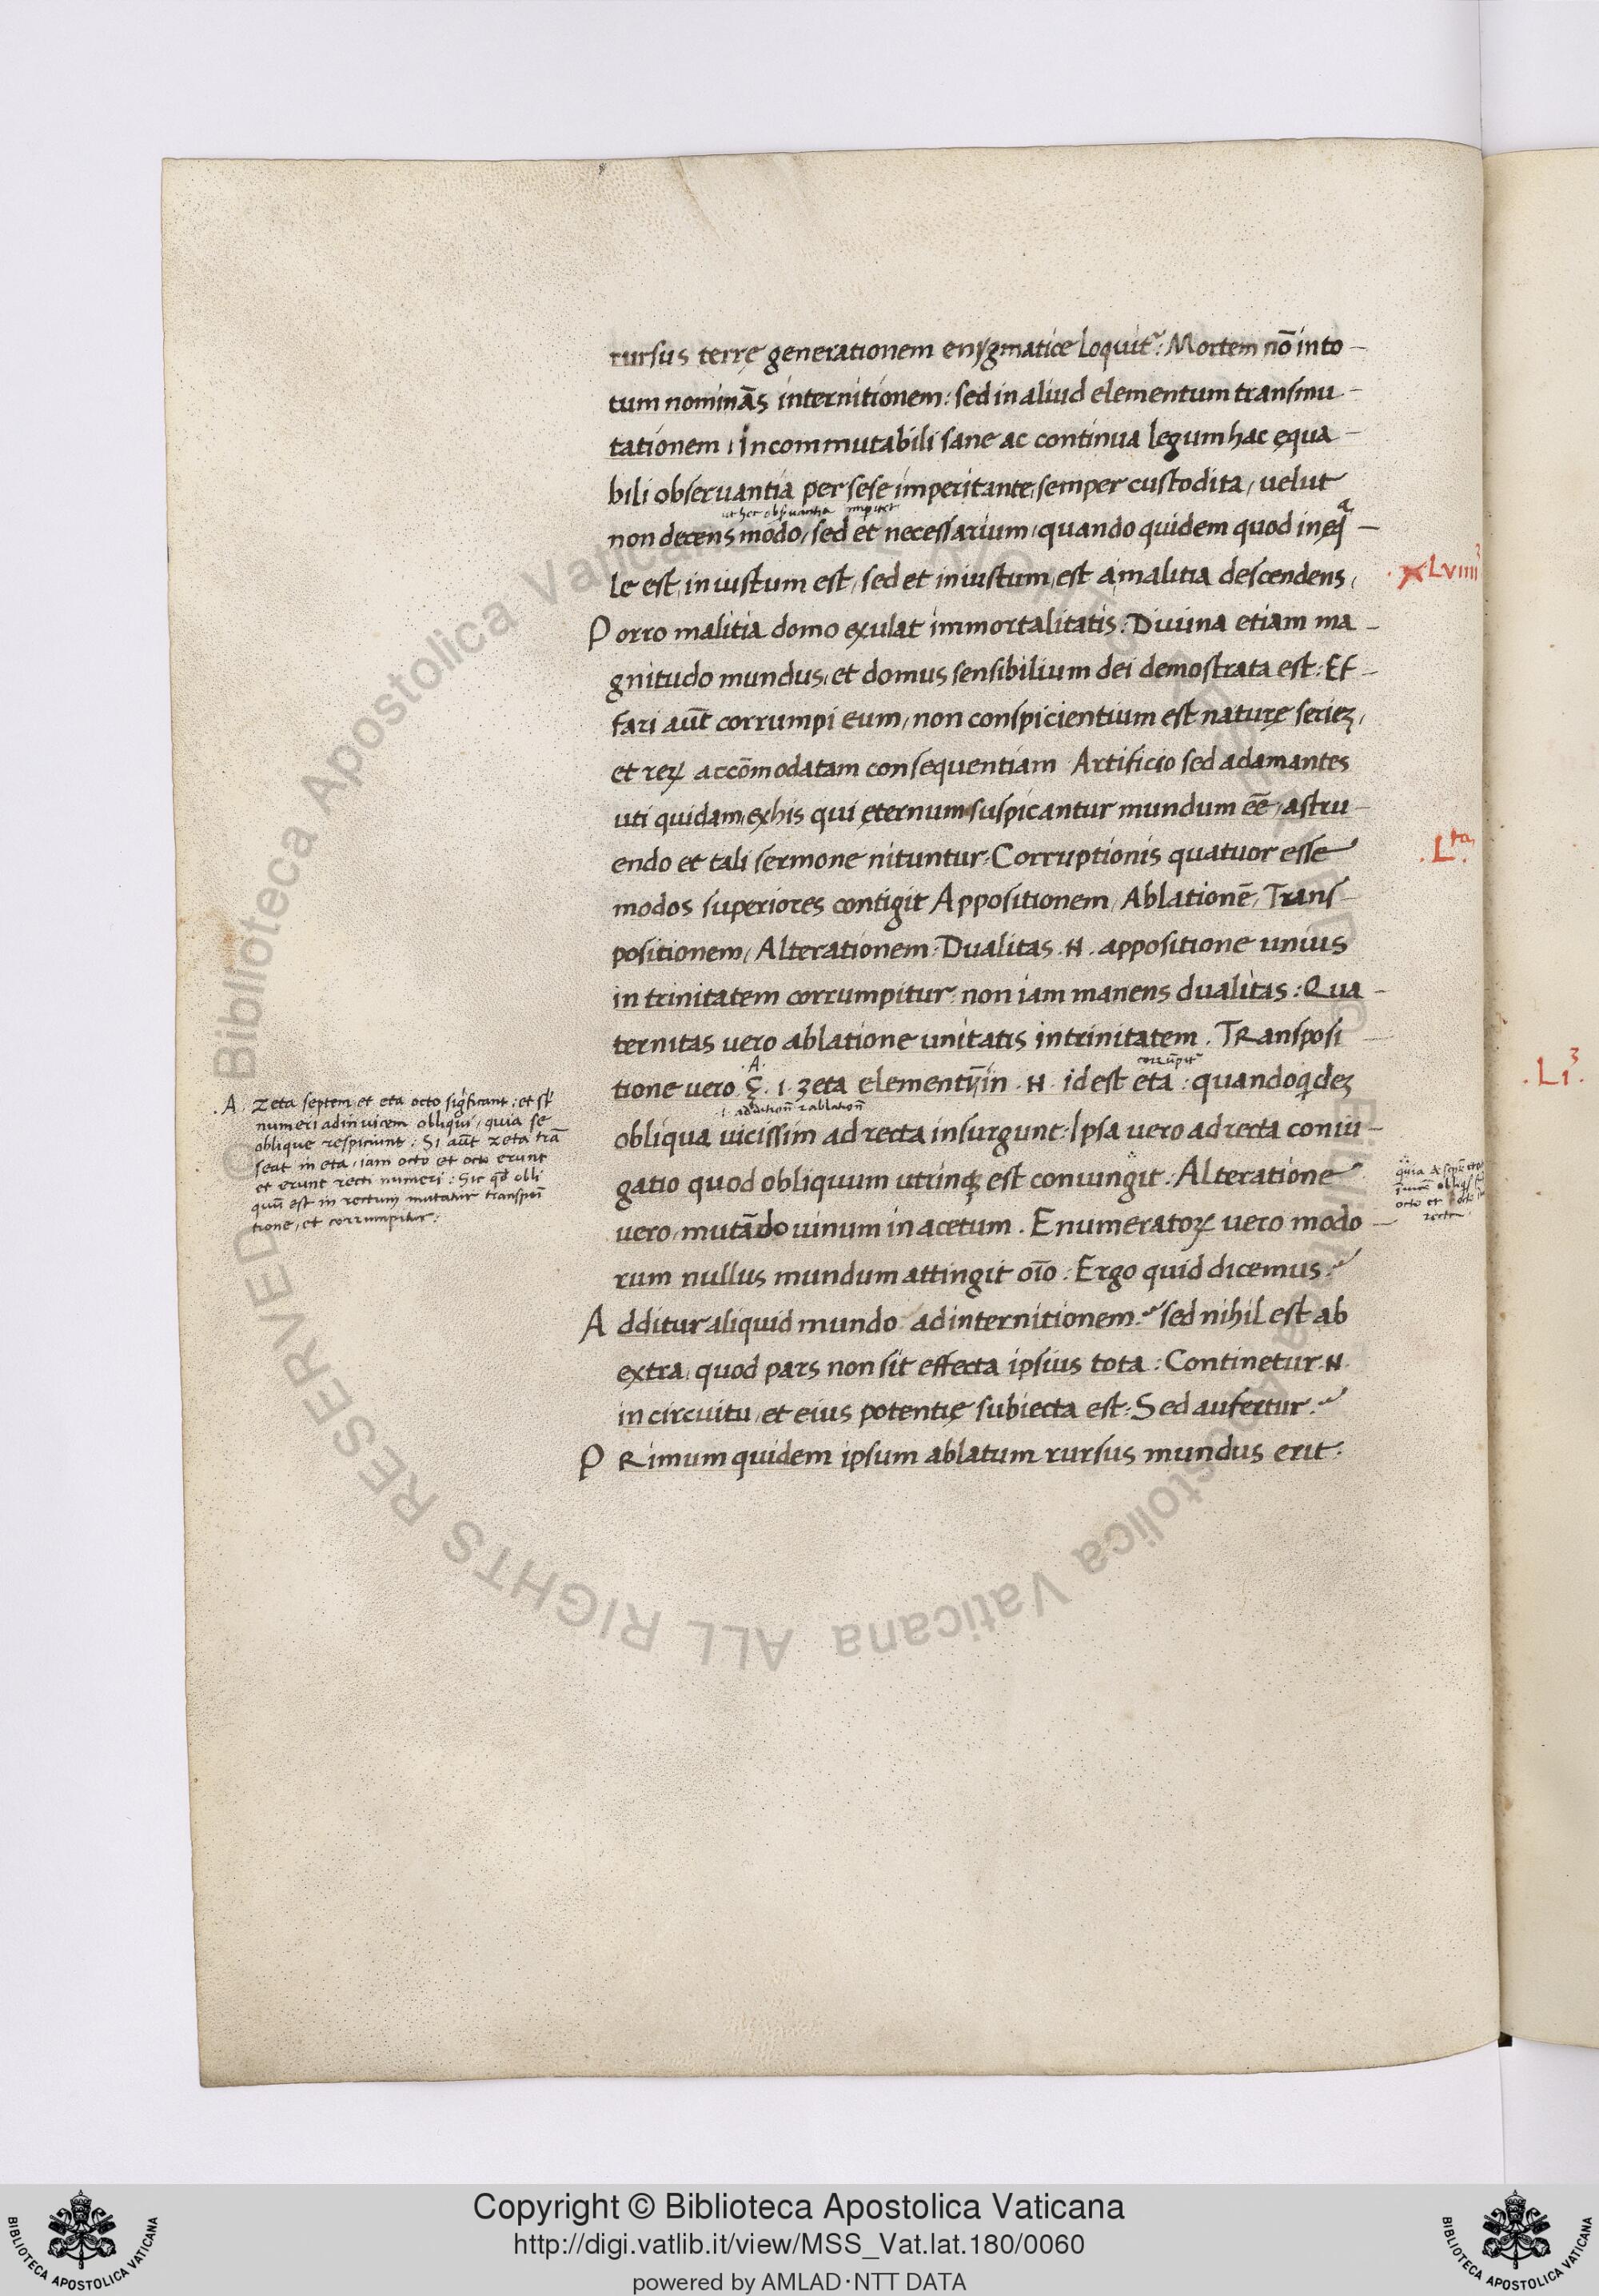 rursus terrę generationem enygmatice loquit᷑: Mortem nō in to-
tum nominās internitionem: sed in aliud elementum transmu-
tationem, Incommutabili sane ac continua legum hac ęqua-
bili obseruantia per sese imperitante, semper custodita, uelut
non decens modo, sed et necessarium, quando quidem quod ineq̃-
le est, iniustum est, sed et iniustum, est a malitia descendens,
XLVIIII
Porro malitia domo exulat immortalitatis: Diuina etiam ma-
gnitudo mundus, et domus sensibilium dei demostrata est: Ef-
fari aut̄ corrumpi eum, non conspicientium est naturę serieʒ,
et reꝝ accōmodatam consequentiam Artificio sed adamantes
uti quidam, ex his qui ęternum suspicantur mundum eē, astru-
.Lta.
endo et tali sermone nituntur: Corruptionis quatuor esse
modos superiores contigit Appositionem, Ablationē, Trans-
positionem, Alterationem: Dualitas .N. appositione unius
in trinitatem corrumpitur non iam manens dualitas: Qua-
ternitas uero ablatione unitatis in trinitatem. TRansposi-
corrūpit᷑
.A.
tione uero .ς. i. zeta elementū, in .H. id est eta: quandoq̇deʒ
.Li3.
obliqua uicissim ad recta insurgunt: Ipsa uero ad recta coniu-
gatio quod obliquum utrinqʒ est conuingit: Alteratione
uero, mutādo uinum in acetum. Enumeratoꝝ uero modo-
rum nullus mundum attingit oīo: Ergo quid dicemus?
Additur aliquid mundo ad internitionem? sed nihil est ab
extra, quod pars non sit effecta ipsius tota: Continetur .N.
in circuitu, et eius potentię subiecta est: Sed aufertur?
PRimum quidem ipsum ablatum rursus mundus erit:
.A. zeta septem et eta octo sig̅ficant: et st̄
numeri adinuicem obliqui, quia se
oblique respiciunt: Si aut̄ zeta trā
seat in eta, iam octo et octo erunt
et erunt recti numeri: Sic qd̄ obli
quū est in rectum mutatur transpoi
tione, et corrumpitur:
Copyright © Biblioteca Apostolica Vaticana
http://digi.vatlib.it/view/MSS_Vat.lat.180/0060
powered by AMLAD·NTT DATA
BIBLIOTECA APOSTOLICA VATICANA
BIBLIOTECA APOSTOLICA VATICANA
© Biblioteca Apostolica Vaticana ALL RIGHTS RESERVED
© Biblioteca Apostolica Vaticana ALL RIGHTS RESERVED